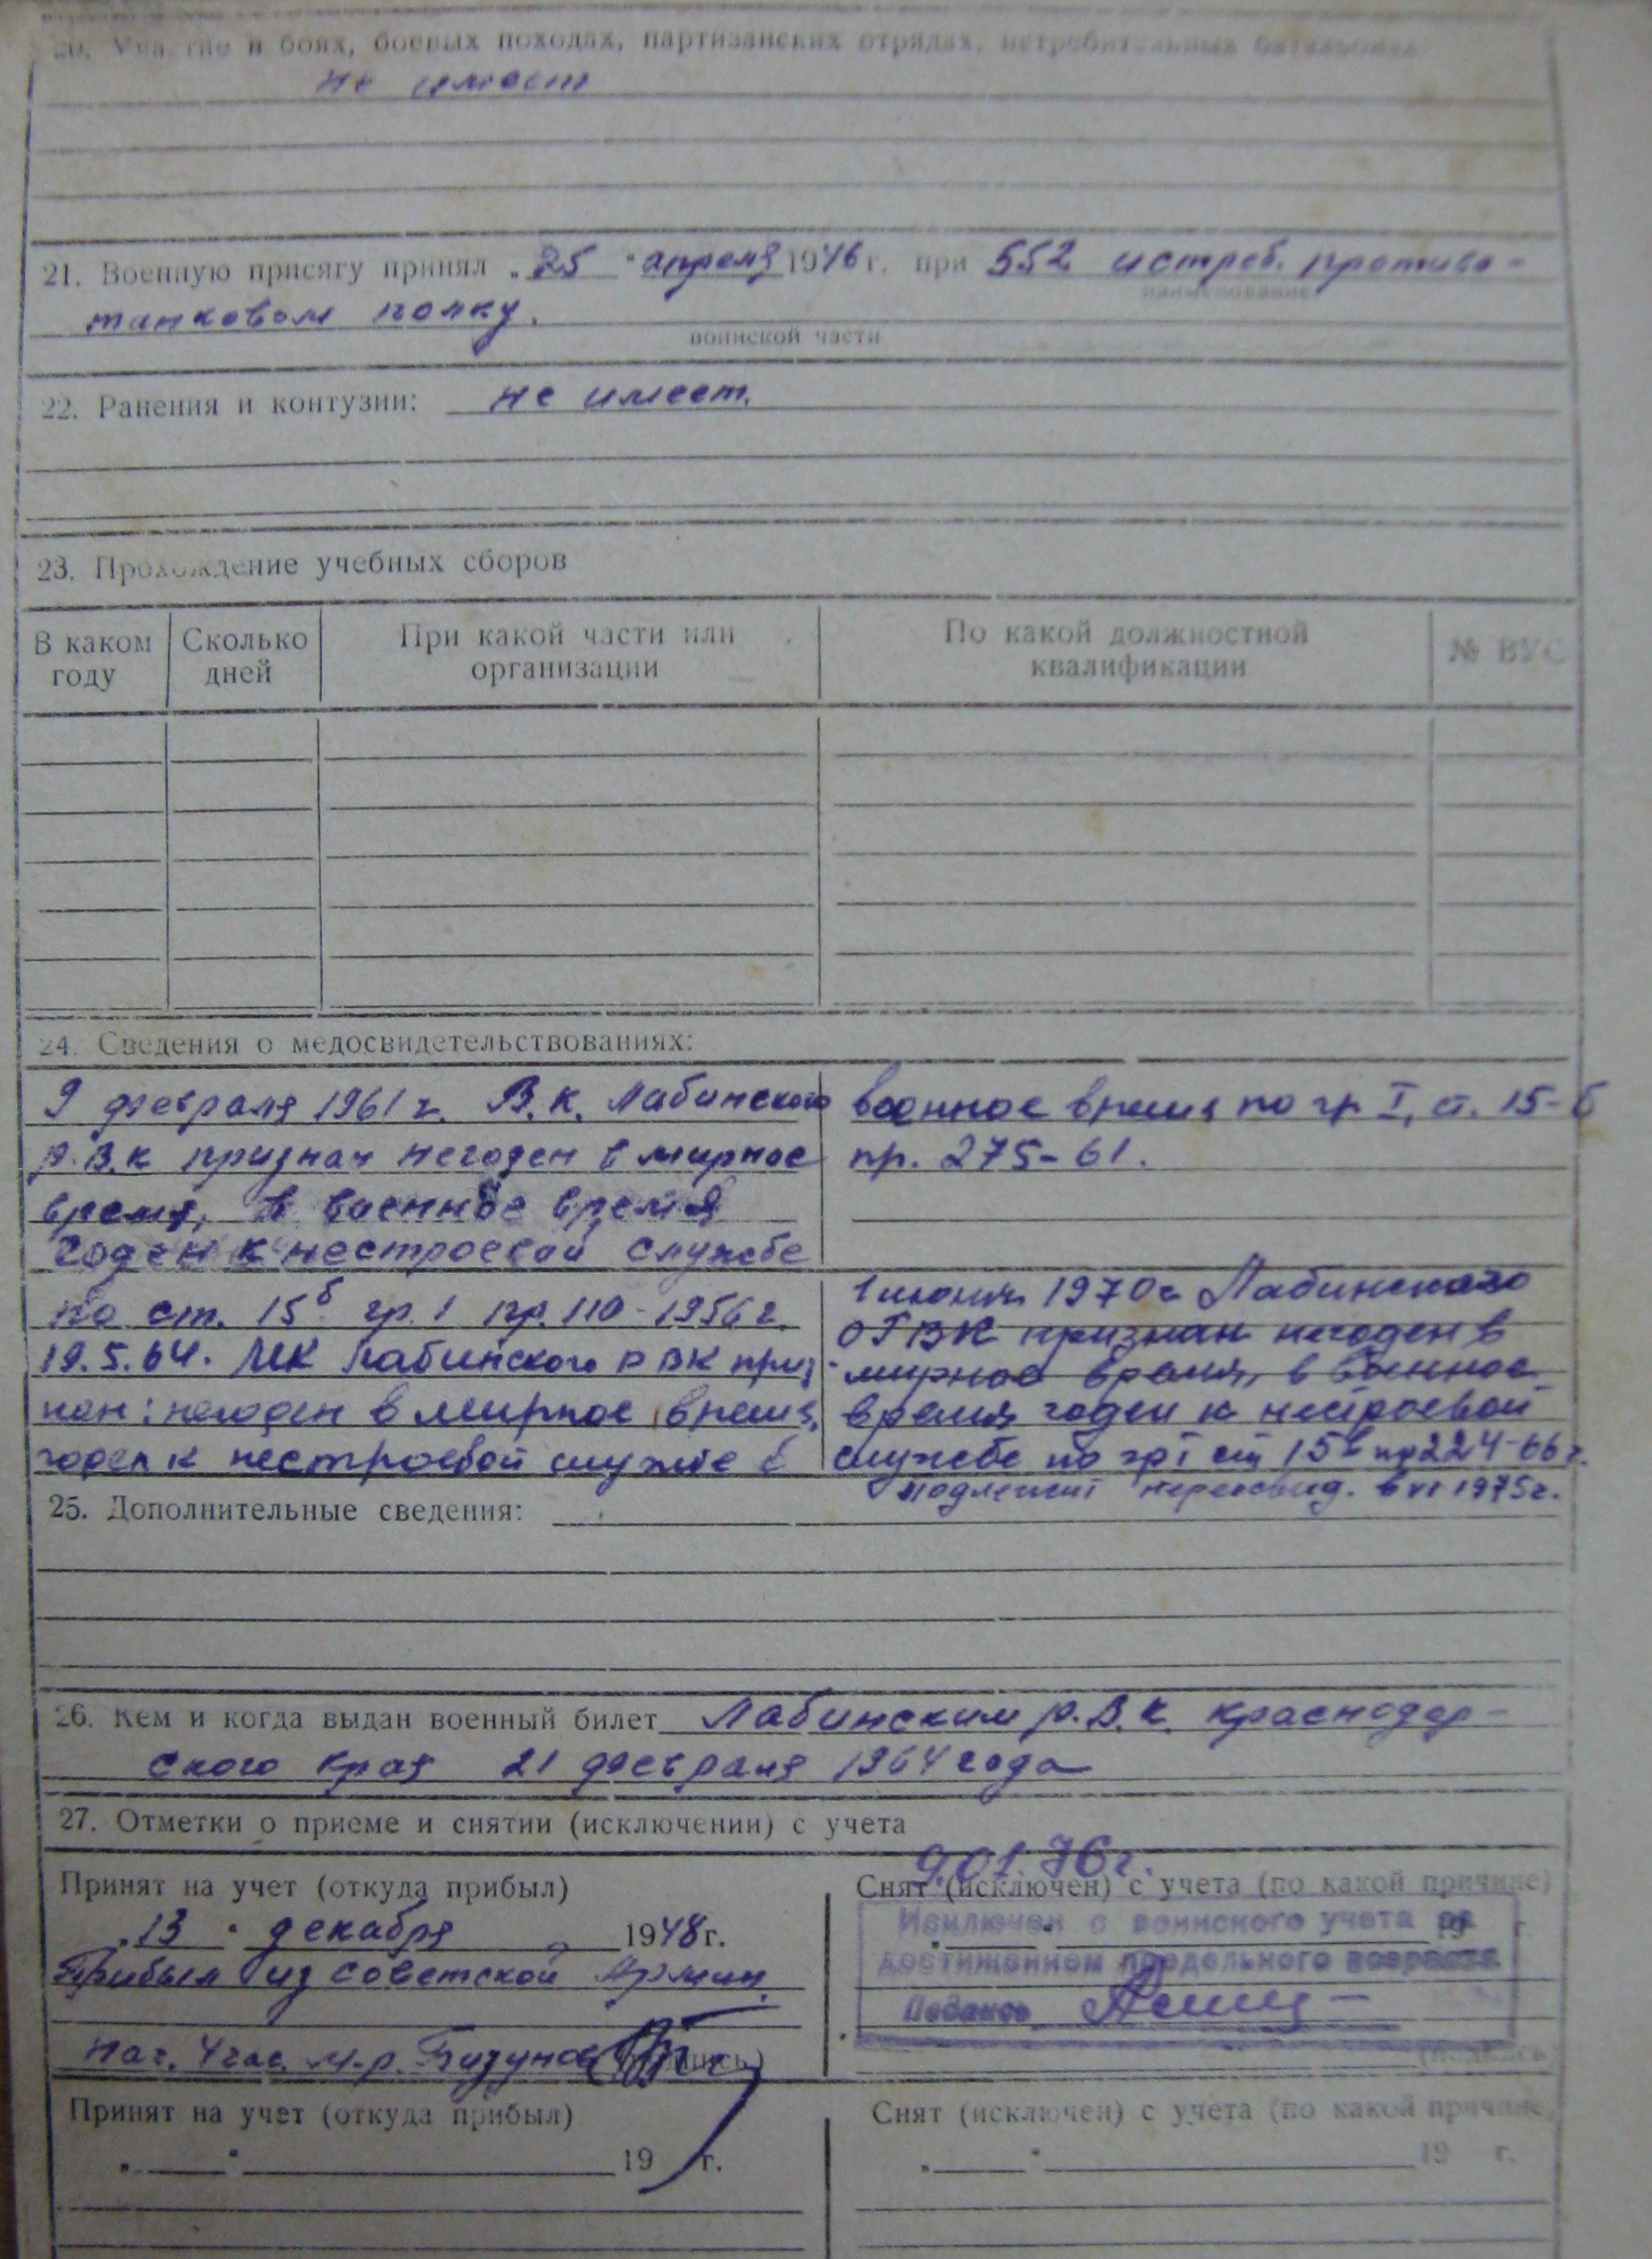 20. Участие в боях, боевых походах, партизанских отрядах, истребительных батальонах
не имеет
21. Военную присягу принял „25" апреля 1946 г. при 552 истреб. противо-
наименование
танковом полку.
воинской части
22. Ранения и контузии: не имеет.
23. Прохождение учебных сборов
В каком году | Сколько дней | При какой части или организации | По какой должностной квалификации | № ВУС
24. Сведения о медосвидетельствованиях:
9 февраля 1961 г. В.К. Лабинского
р.В.К признан негоден в мирное
время, в военное время
годен к нестроевой службе
по ст. 15б гр. 1 пр. 110-1956 г.
19.5.64. МК Лабинского РВК приз
нан: негоден в мирное время,
годен к нестроевой службе в
военное время по гр I, ст. 15-б
пр. 275-61.
1 июня 1970 г Лабинского
ОГВК признан негоден в
мирное время, в военное
время годен к нестроевой
службе по гр I ст 15в пр 224-66 г.
подлежит переосвид. в VI 1975 г.
25. Дополнительные сведения:
26. Кем и когда выдан военный билет Лабинским р.В.К. Краснодар-
ского края 21 февраля 1964 года
27. Отметки о приеме и снятии (исключении) с учета
Принят на учет (откуда прибыл)
„13" декабря 1948 г.
Прибыл из Советской Армии.
Нач. 4 час. м-р. Бузунов (подпись)
9.01.76 г.
Снят (исключен) с учета (по какой причине)
„ " 19 г.
Исключен с воинского учета по
достижении предельного возраста
Подпись
(подпись
Принят на учет (откуда прибыл)
„ " 19 г.
Снят (исключен) с учета (по какой причине)
„ " 19 г.